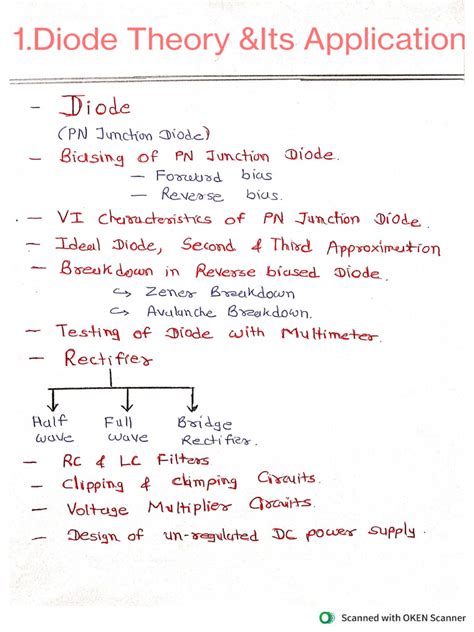 1.Diode Theory &Its Application
- Diode
(PN Junction Diode)
- Biasing of PN Junction Diode.
- Forward bias
- Reverse bias.
- VI Characteristics of PN Junction Diode.
- Ideal Diode, Second & Third Approximation
- Breakdown in Reverse biased Diode.
↳ Zener Breakdown
↳ Avalanche Breakdown.
- Testing of Diode with Multimeter.
- Rectifier
Half wave
Full wave
Bridge Rectifier.
- RC & LC Filters
- Clipping & clamping Circuits.
- Voltage Multiplier Circuits.
- Design of un-regulated DC power supply.
Scanned with OKEN Scanner